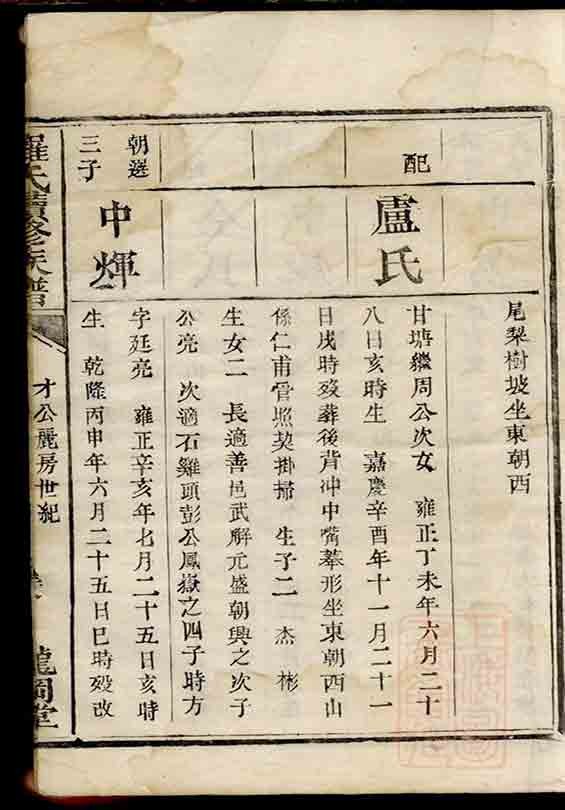 尾梨樹坡坐東朝西
配
盧氏
甘塘繼周公次女 雍正丁未年六月二十
八日亥時生 嘉慶辛酉年十一月二十一
日戌時歿葬後背冲中嘴墓形坐東朝西山
係仁甫管照契掛掃 生子二 杰 彬
生女二 長適善邑武解元盛朝興之次子
公亮 次適石雞頭彭公鳳嶽之四子時方
朝選
三子
中煇
字廷亮 雍正辛亥年七月二十五日亥時
生 乾隆丙申年六月二十五日巳時歿改
羅氏續修族譜
才公麗房世紀
龍岡堂